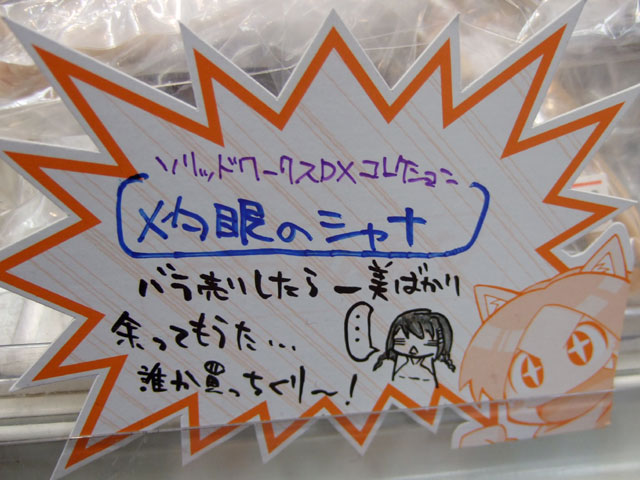 ソリッドワークスDXコレクション
灼眼のシャナ
バラ売りしたら一美ばかり
余ってもうた…
誰か買っちくり〜！
…